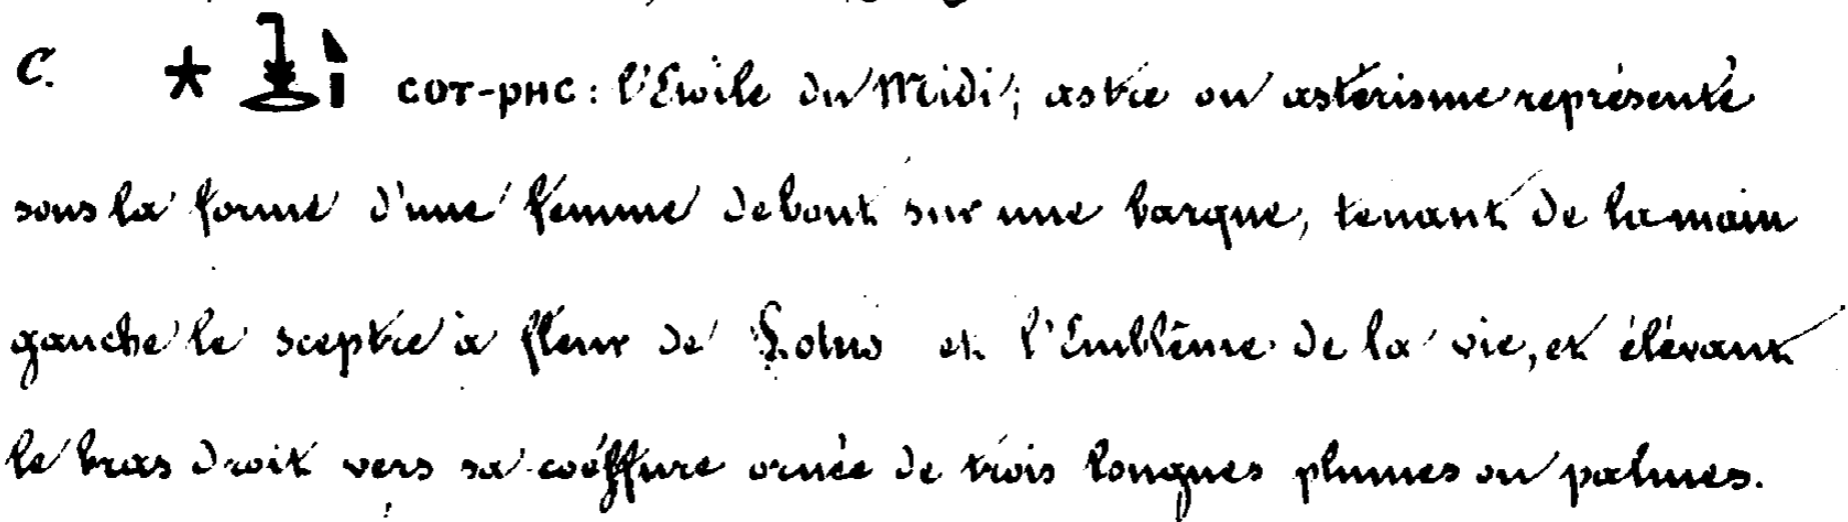 C. * COT-PHC: l'Etoile du Midi; astre ou astérisme représenté
sous la forme d'une femme debout sur une barque, tenant de la main
gauche le sceptre à fleur de Lotus et l'Emblême de la vie, et élévant
le bras droit vers sa coéffure ornée de trois longues plumes ou palmes.